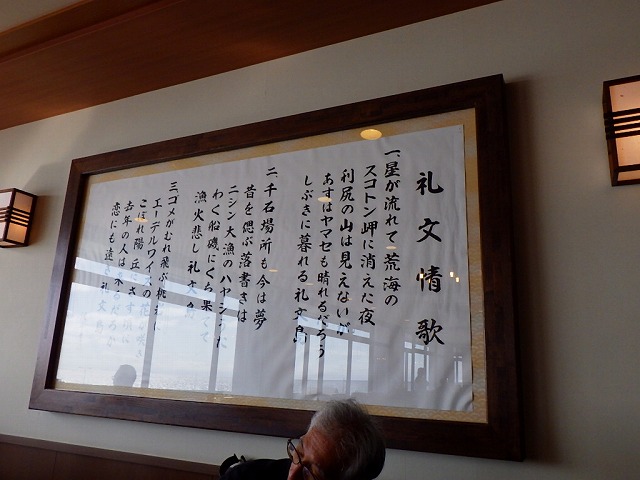 礼文情歌
一、星が流れて荒海の
スコトン岬に消えた夜
利尻の山は見えないが
あすはヤマセも晴れるだろう
しぶきに暮れる礼文島
二、千石場所も今は夢
昔を偲ぶ落書きは
ニシン大漁のハヤシ
わく船磯にくち果てて
漁火悲し礼文島
三、ゴメがむれ飛ぶ桃岩に
エーデルワイスの花
こぼれ陽丘にさす頃に
去年の人は
恋にも遠き礼文島